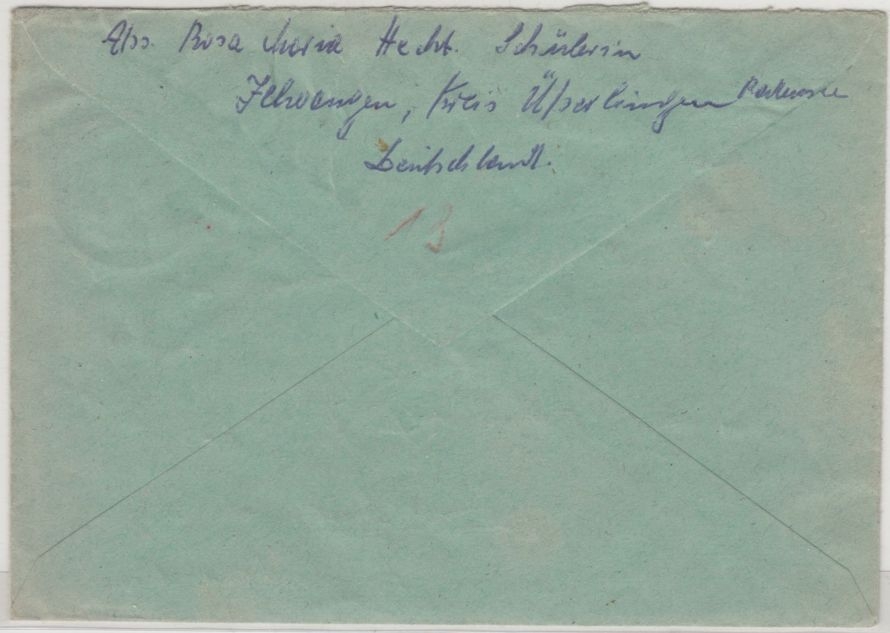 Abs. Rosa Maria Hecht. Schülerin
Illwangen, Kreis Überlingen Bodensee
Deutschland.
13